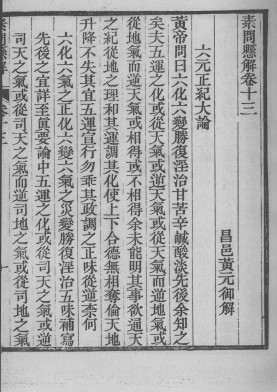 素問懸解卷十三
昌邑黃元御解
六元正紀大論
黃帝問曰六化六變勝復淫治甘苦辛鹹酸淡先後余知之
矣夫五運之化或從天氣或逆天氣或從天氣而逆地氣或
從地氣而逆天氣或相得或不相得余未能明其事欲通天
之紀從地之理和其運調其化使上下合德無相奪倫天地
升降不失其宜五運宣行勿乖其政調之正味從逆奈何
六化六氣之正化六變六氣之災變勝復淫治五味補瀉
先後之宜詳至眞要論中五運之化或從司天之氣或逆
司天之氣或從司天之氣而逆司地之氣或從司地之氣